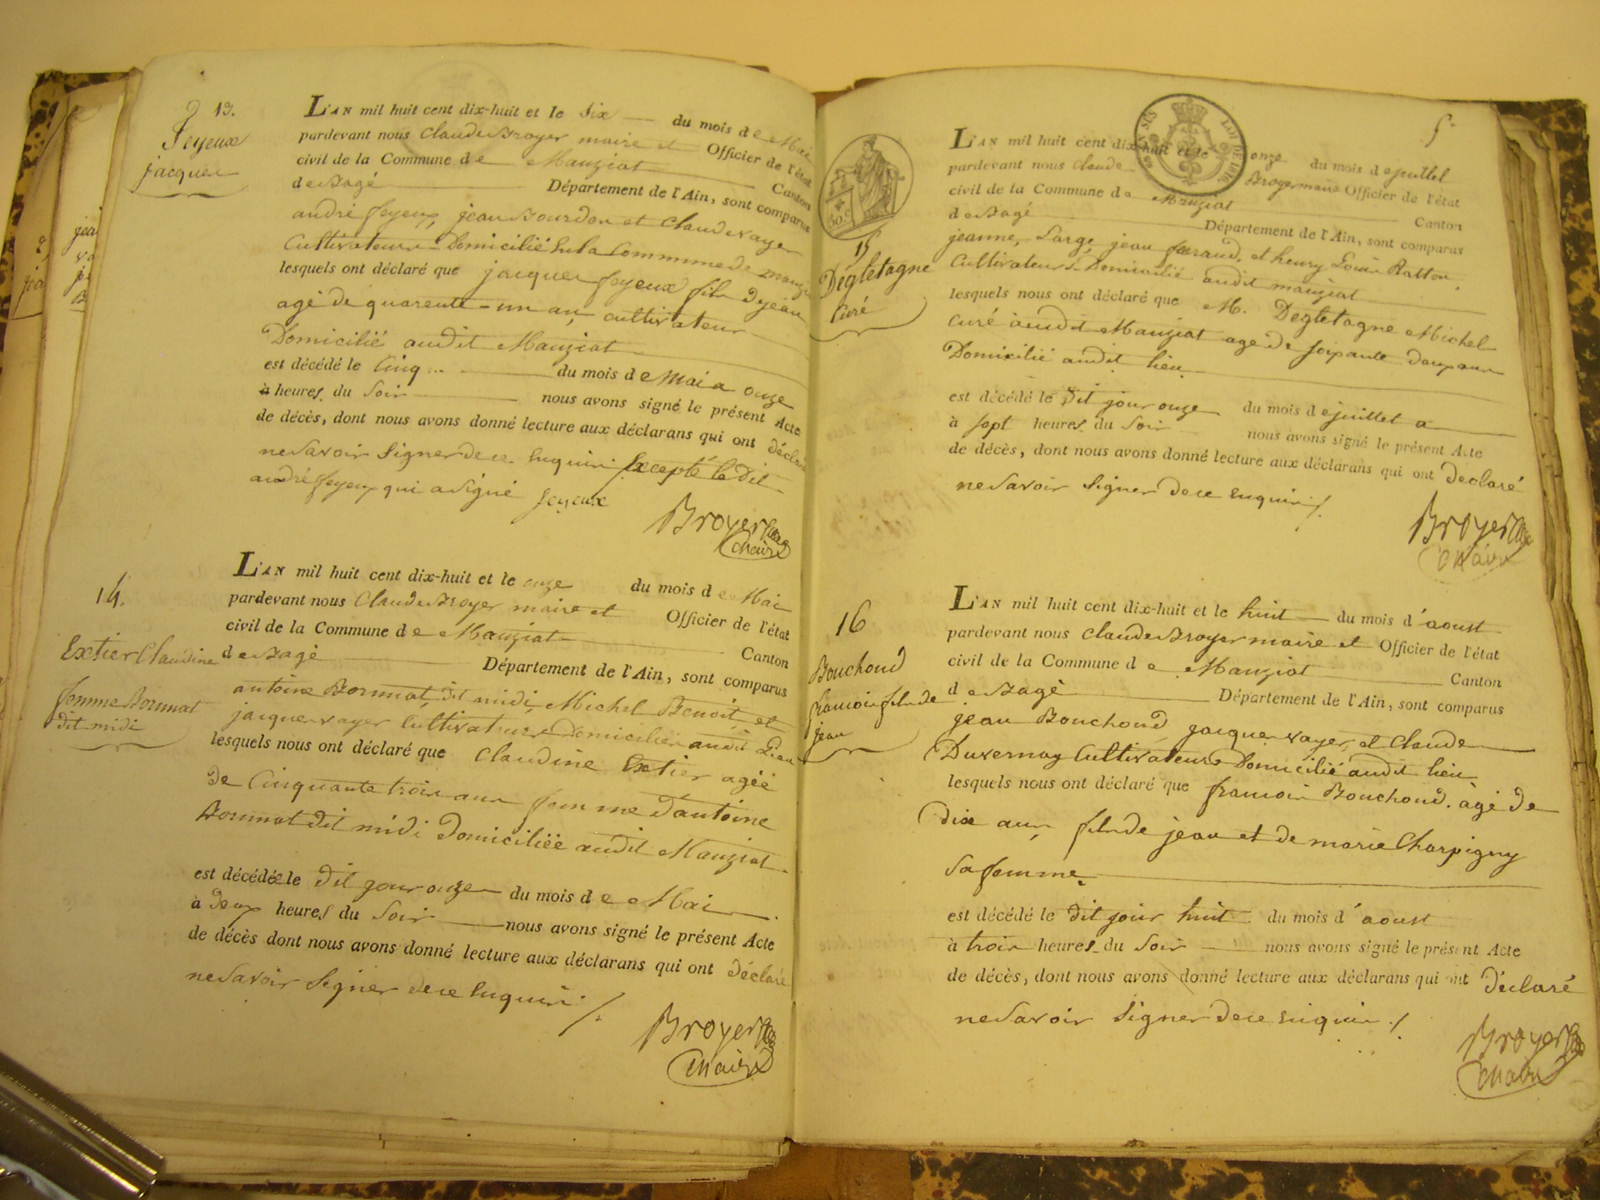 13.
Feyeux
jacque
L'AN mil huit cent dix-huit et le six du mois de Mai
pardevant nous Claude Broyer maire et Officier de l'état
civil de la Commune de Manziat Canton
de Bagé Département de l'Ain, sont comparus
andré feyeux, jean Bourdon et Claude vayer
Cultivateurs Domicilié Sur la Commune de manziat
lesquels nous ont déclaré que jacque feyeux fils De jean
agé de quarente-un an, cultivateur
Domicilié audit Manziat
est décédé le Cinq du mois de Mai a onze
à heures du Soir nous avons signé le présent Acte
de décès, dont nous avons donné lecture aux déclarans qui ont déclaré
ne Savoir Signer de ce Enquis Excepté le Dit
andré feyeux qui a Signé feyeux
Broyer
Maire
14.
Extier Claudine
femme Bonnat
dit midi
L'AN mil huit cent dix-huit et le onze du mois de Mai
pardevant nous Claude Broyer maire et Officier de l'état
civil de la Commune de Manziat Canton
de Bagé Département de l'Ain, sont comparus
antoine Bonnat, dit midi, Michel Benoit, et
jacque vayer Cultivateurs Domicilié audit Lieu
lesquels nous ont déclaré que Claudine Extier agée
de Cinquante trois ans femme D'antoine
Bonnat dit midi Domiciliée audit Manziat
est décédée le dit jour onze du mois de Mai
à Deux heures du Soir nous avons signé le présent Acte
de décès dont nous avons donné lecture aux déclarans qui ont déclaré
ne Savoir Signer de ce Enquis
Broyer
Maire
5
15
Degletagne
Curé
L'AN mil huit cent dix-huit et le onze du mois de juillet
pardevant nous Claude Broyer maire Officier de l'état
civil de la Commune de Manziat Canton
de Bagé Département de l'Ain, sont comparus
jeanne, Large, jean faraud, et henry Louis Ratton
Cultivateurs Domicilié audit manziat
lesquels nous ont déclaré que M. Degletagne Michel
curé audit Manziat age de soixante Deux ans
Domicilié audit lieu
est décédé le Dit jour onze du mois de juillet a
à sept heures du Soir nous avons signé le présent Acte
de décès, dont nous avons donné lecture aux déclarans qui ont Declaré
ne Savoir Signer de ce Enquis
Broyer
Maire
16
Bouchoud
francois fils de
jean
L'AN mil huit cent dix-huit et le huit du mois d'aoust
pardevant nous Claude Broyer maire et Officier de l'état
civil de la Commune de Manziat Canton
de Bagé Département de l'Ain, sont comparus
jean Bouchoud, jacque vayer, et Claude
Duvernay Cultivateurs Domicilié audit lieu
lesquels nous ont déclaré que francois Bouchoud. âgé de
Dix ans fils de jean et de marie Charpigny
Sa femme
est décédé le dit jour huit du mois d'aoust
à trois heures du Soir nous avons signé le présent Acte
de décès, dont nous avons donné lecture aux déclarans qui ont déclaré
ne Savoir Signer de ce Enquis
Broyer
Maire